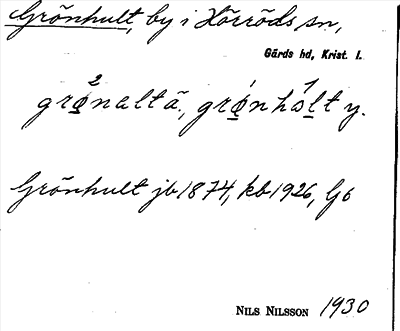 Grönhult, by i Hörröds sn,
Gärds hd, Krist. l.
grø̲naltã, grø̲nhal̲t y.
Grönhult jb 1874, kb 1926, Gö
NILS NILSSON 1930